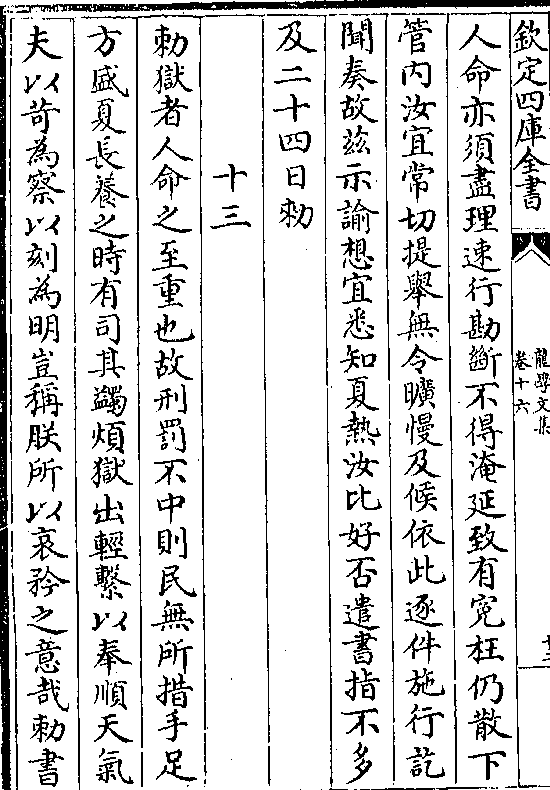 欽定四庫全書
龍學文集
卷十六
人命亦須盡理速行勘斷不得淹延致有寃枉仍散下
管內汝宜常切提舉無令曠慢及候依此逐件施行訖
聞奏故茲示諭想宜悉知夏熱汝比好否遣書指不多
及二十四日勅
十三
勅獄者人命之至重也故刑罰不中則民無所措手足
方盛夏長養之時有司其蠲煩獄出輕繫以奉順天氣
夫以苛為察以刻為明豈稱朕所以哀矜之意哉勅書